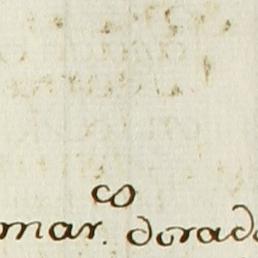 co
mar. dorado